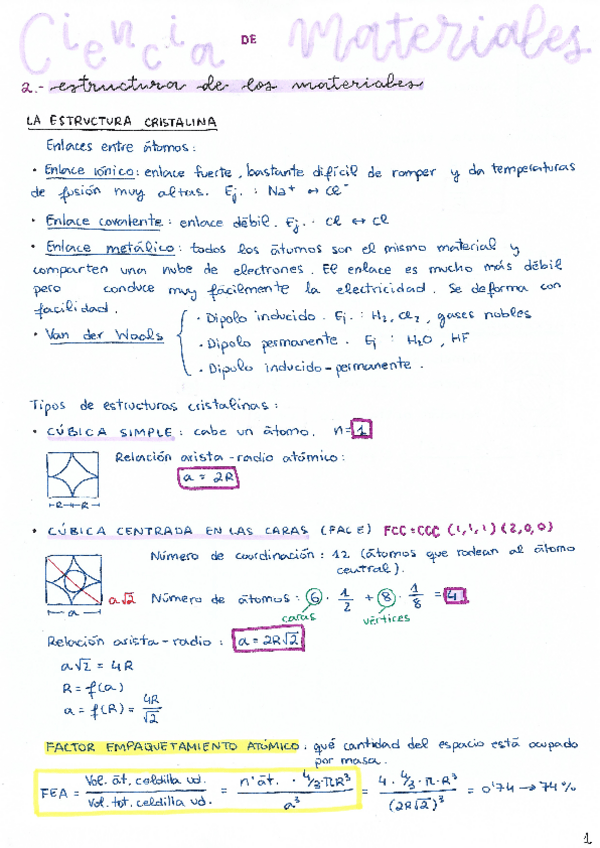 Ciencia DE Materiales
2.- estructura de los materiales
LA ESTRUCTURA CRISTALINA
Enlaces entre átomos:
· Enlace iónico: enlace fuerte, bastante difícil de romper y da temperaturas
de fusión muy altas. Ej.: Na⁺ ↔ Cl⁻
· Enlace covalente: enlace débil. Ej.: Cl ↔ Cl
· Enlace metálico: todos los átomos son el mismo material y
comparten una nube de electrones. El enlace es mucho más débil
pero conduce muy fácilmente la electricidad. Se deforma con
facilidad.
· Van der Waals
· Dipolo inducido. Ej.: H₂, Cl₂, gases nobles
· Dipolo permanente. Ej: H₂O, HF
· Dipolo inducido-permanente.
Tipos de estructuras cristalinas:
· CÚBICA SIMPLE: cabe un átomo. n=1
Relación arista-radio atómico:
a = 2R
R R
· CÚBICA CENTRADA EN LAS CARAS (FACE) FCC=CCC (1,1,1) (2,0,0)
Número de coordinación: 12 (átomos que rodean al átomo
central).
a√2 Número de átomos: 6 · 1/2 + 8 · 1/8 = 4
a caras vértices
Relación arista-radio: a = 2R√2
a√2 = 4R
R = f(a)
a = f(R) = 4R/√2
FACTOR EMPAQUETAMIENTO ATÓMICO: qué cantidad del espacio está ocupado
por masa.
FEA = Vol. át. celdilla ud. / Vol. tot. celdilla ud. = nº át. · 4/3·π·R³ / a³ = 4 · 4/3 · π · R³ / (2R√2)³ = 0'74 → 74%
1